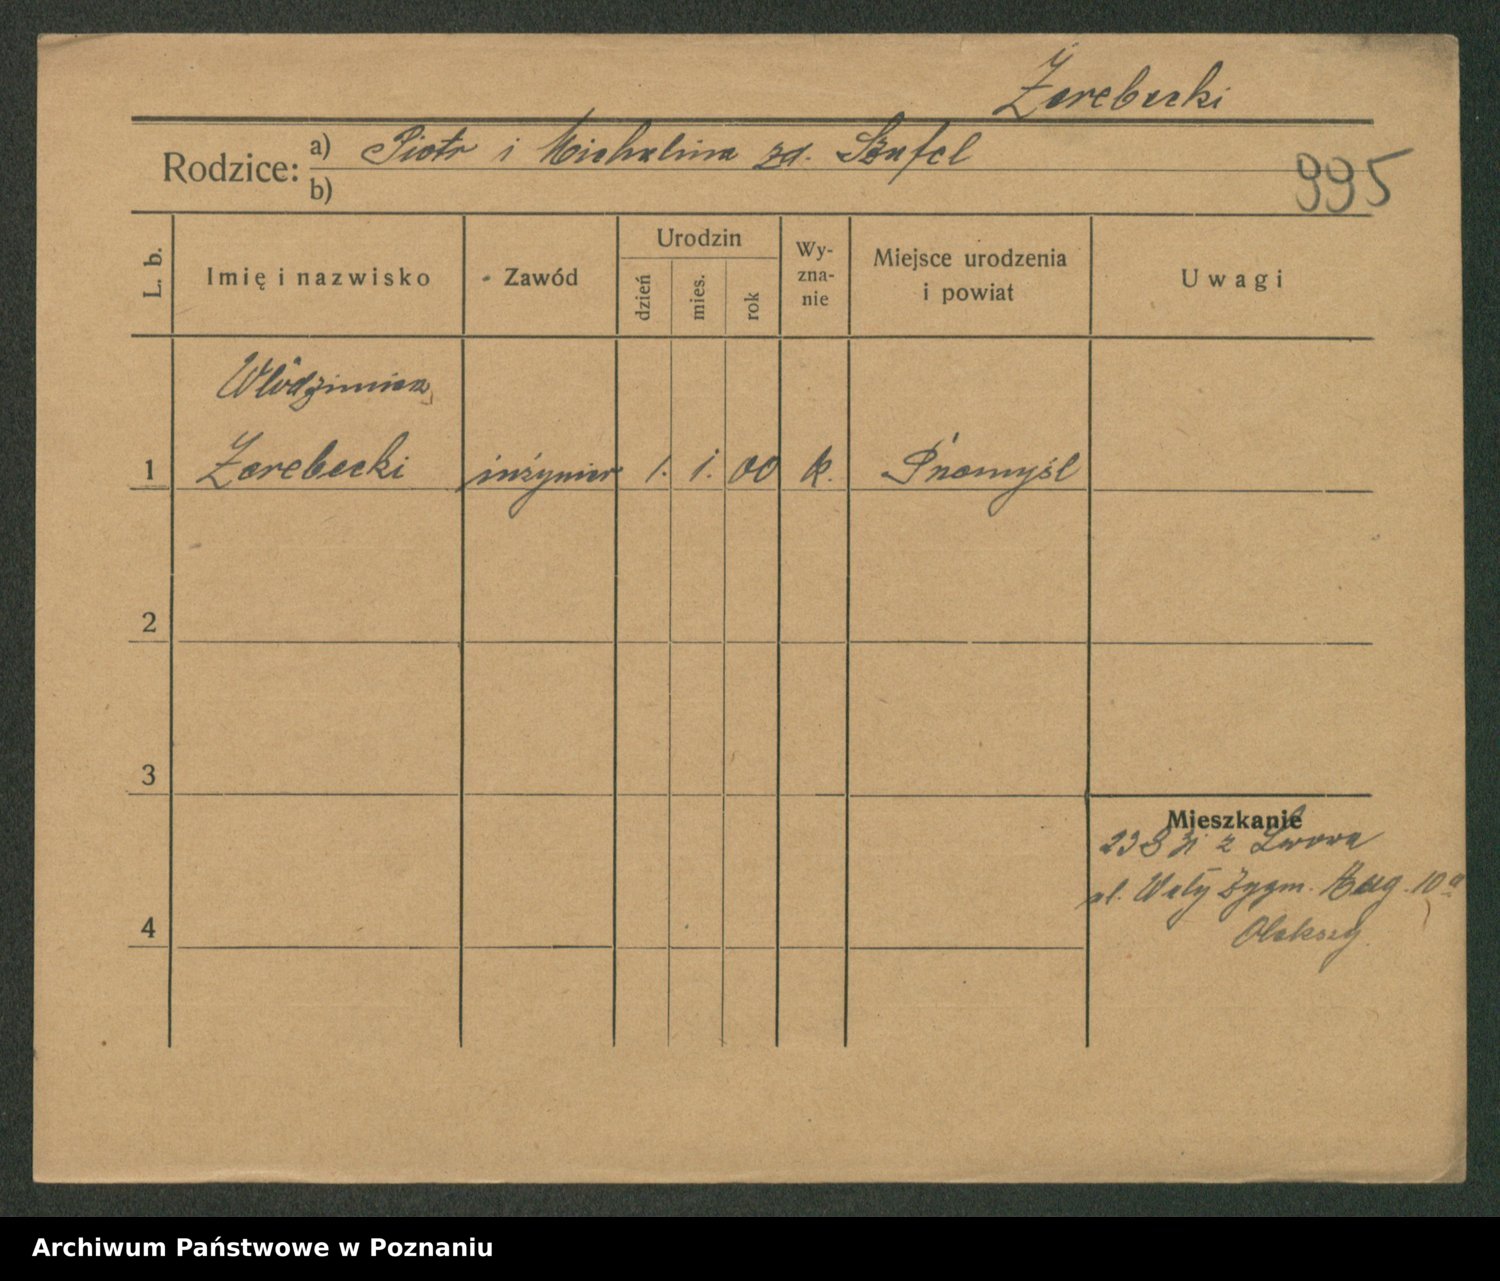 Żerebecki
Rodzice: a) Piotr i Michalina zd. Szafel
b)
995
L. b.
Imię i nazwisko
Zawód
Urodzin
dzień
mies.
rok
Wy-
zna-
nie
Miejsce urodzenia
i powiat
Uwagi
Włodzimierz
1 Żerebecki inżynier 1. 1. 00 k. Przemyśl
2
3
Mieszkanie
23 8 31 z Lwowa
ul. Wały Zygm. Aug. 10 a
4
Archiwum Państwowe w Poznaniu